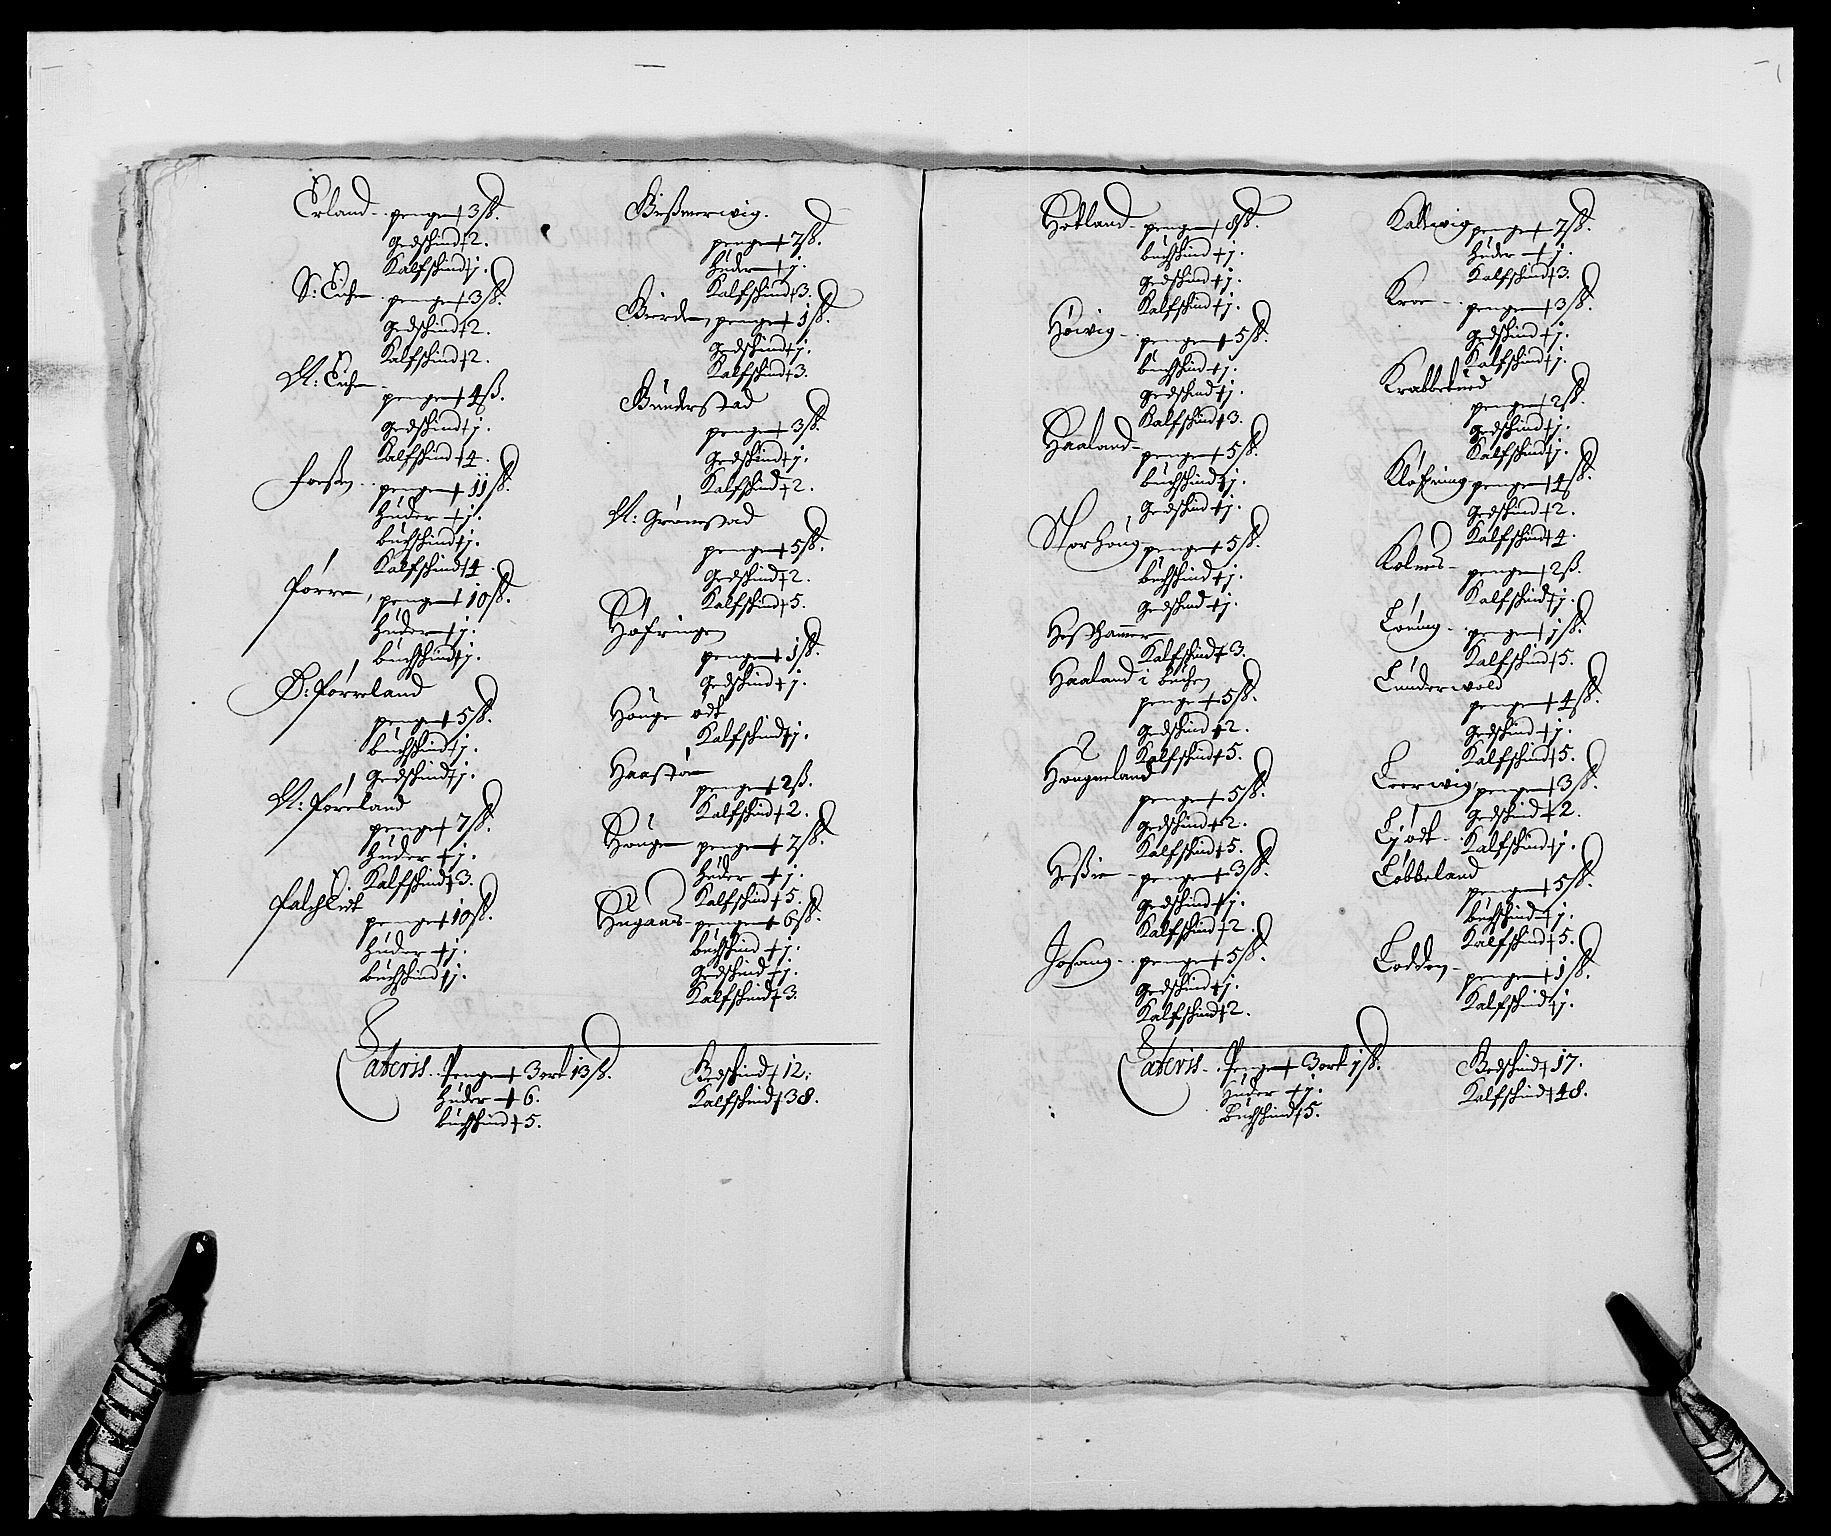 Erland. penge + 3 ß.
gedschind + 2.
Kalfschind + j.
S: Eiche penge + 3 ß.
gedschind + 2.
Kalfschind + 2.
N: Eiche
penge + 4 ß.
gedschind + j.
Kalfschind + 4.
penge + 11 ß.
huder + j.
buchschind + j.
Kalfschind + 4.
førre, penge + 10 ß.
huder + j.
buchschind + j.
S: førreland
penge + 5 ß.
buchschind + j.
gedschind + j.
N: føreland
penge + 7 ß.
huder + j.
Kalfschind + 3.
falchEidt
penge + 10 ß.
huder + j.
buchschind + j.
Bißmerwig.
penge + 7 ß.
huder + j.
Kalfschind + 3.
penge + 1 ß.
gedschind + j.
Kalfschind + 3.
Gunderstad
penge + 3 ß.
gedschind + j.
Kalfschind + 2.
N: Grønnestad
penge + 5 ß.
gedschind + 2.
Kalfschind + 5.
Høfringen
penge + 1 ß.
gedschind + j.
Houge ødt
Kalfschind + j.
Haastøe
penge + 2 ß.
Kalfschind + 2.
Hougen penge + 7 ß.
huder + j.
Kalfschind + 5.
Hegaas penge + 6 ß.
buchschind + j.
gedschind + j.
Kalfschind + 3.
Lateris. Penge + 3 ort 13 ß.
huder + 6.
buchschind + 5.
Gedschind + 12.
Kalfschind + 38.
Hetland penge + 8 ß.
buchschind + j.
gedschind + j.
Kalfschind + j.
Høiwig penge + 5 ß.
buchschind + j.
gedschind + j.
Kalfschind + 3.
Haaland penge + 5 ß.
buchschind + j.
gedschind + j.
Storhoug penge + 5 ß.
buchschind + j.
gedschind + j.
Hesthammer
Kalfschind + 3.
Haaland i buchen
penge + 5 ß.
gedschind + 2.
Kalfschind + 5.
Hougeland
penge + 5 ß.
gedschind + 2.
Kalfschind + 5.
Heßvie penge + 3 ß.
gedschind + j.
Kalfschind + 2.
Josang penge + 5 ß.
gedschind + j.
Kalfschind + 2.
Kallwig penge + 7 ß.
huder + j.
Kalfschind + 3.
Kroe penge + 3 ß.
gedschind + j.
Kalfschind + j.
Krabbetued
penge + 2 ß.
gedschind + j.
Kalfschind + j.
Kløfning penge + 4 ß.
gedschind + 2.
Kalfschind + 4.
Kolnes penge + 2 ß.
Kalfschind + j.
Løning penge + j ß.
Kalfschind + 5.
Lunderwold
penge + 4 ß.
gedschind + j.
Kalfschind + 5.
Leerwig penge + 3 ß.
gedschind + 2.
Ljødt Kalfschind + j.
Løbbeland
penge + 5 ß.
buchschind + j.
Kalfschind + 5.
Lodden penge + 1 ß.
Kalfschind + j.
Lateris. Penge + 3 ort j ß.
huder + j.
Buchschind + 5.
Gedschind + 17.
Kalfschind + 48.